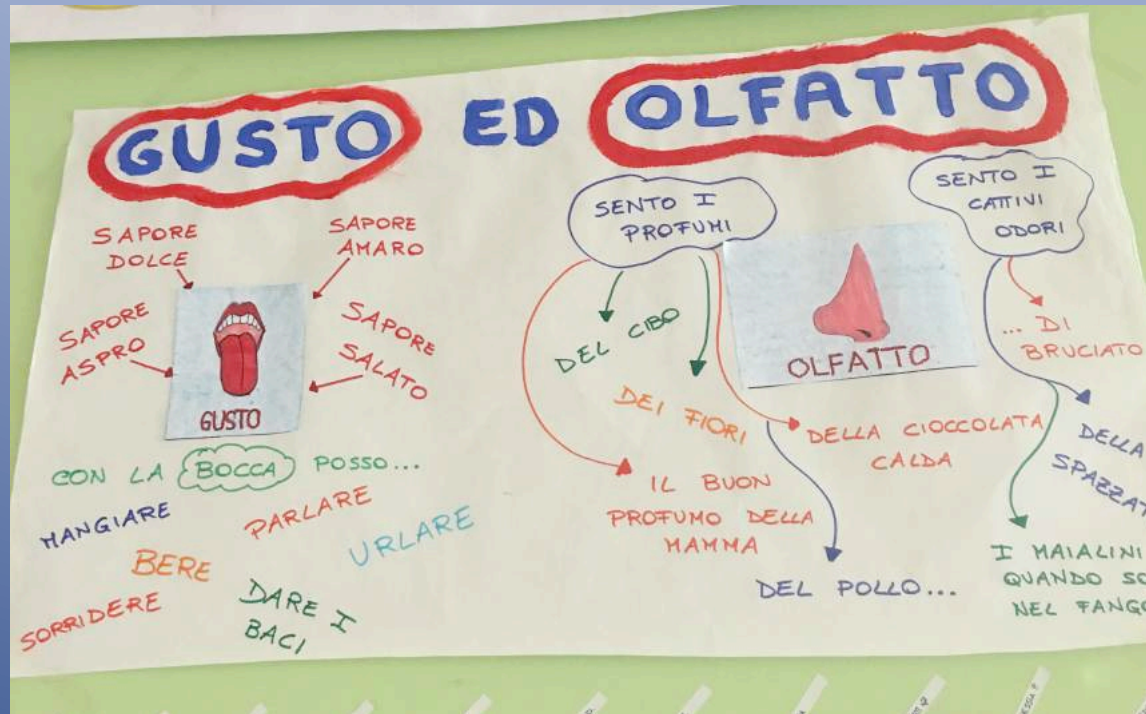 GUSTO ED OLFATTO
SAPORE
DOLCE
SAPORE
AMARO
SAPORE
ASPRO
SAPORE
SALATO
GUSTO
CON LA BOCCA POSSO...
MANGIARE
PARLARE
URLARE
BERE
SORRIDERE
DARE I
BACI
SENTO I
PROFUMI
DEL CIBO
DEI FIORI
OLFATTO
DELLA CIOCCOLATA
CALDA
IL BUON
PROFUMO DELLA
MAMMA
DEL POLLO...
SENTO I
CATTIVI
ODORI
... DI
BRUCIATO
DELLA
SPAZZAT
I MAIALINI
QUANDO SO
NEL FANGO